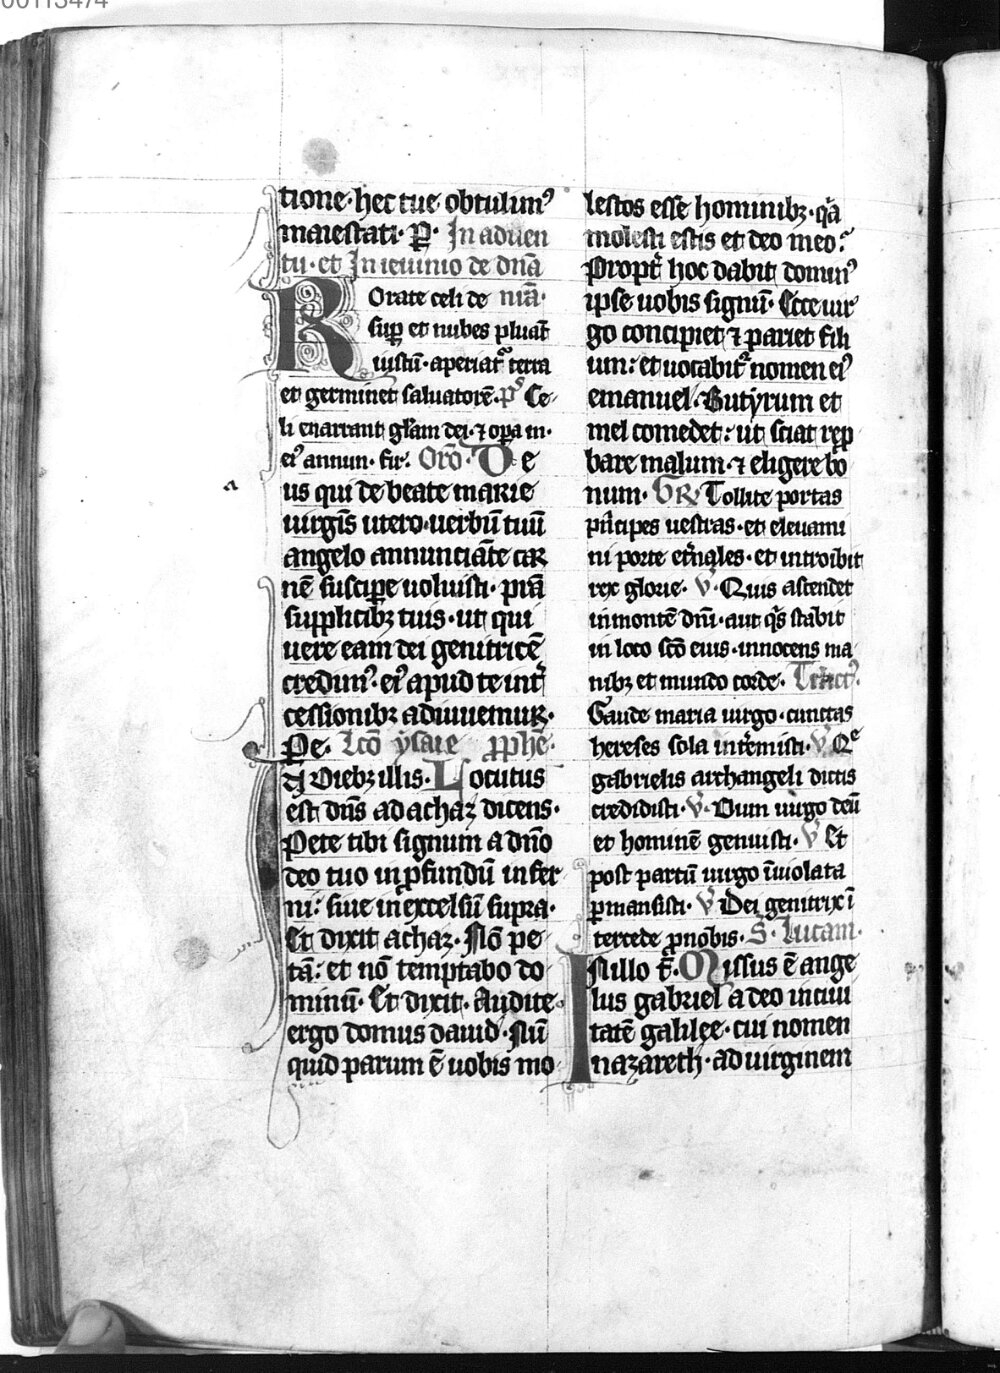 00113474
tione· hec tue obtulim⁹
maiestati· P̲· In aduen
tu· et In ieiunio de dn̄a
Rorate celi de nīa·
sup̲ et nubes pluāt
iustū· aperiat᷑ terra
et germinet saluatorē· p̄s Ce
li enarrant gl̄am dei· ⁊ op̲a m·
ei⁹ annun· fir. Orō· De
us qui de beate marie
uirgīs utero· uerbū tuū
angelo annunciāte car
nē suscipe uoluisti· prā
supplicibꝫ tuis· ut qui
uere eam dei genitricē
credim⁹· ei⁹ apud te int̄
cessionibꝫ adiuuemur·
Pe· Lcō ysaie pphē·
Iɴ Diebꝫ illis· Locutus
est dn̄s ad achaz dicens·
Pete tibi signum a dn̄o
deo tuo in ꝓfundū infer
ni: siue in excelsū supra·
Et dixit achaz· Nō pe
tā: et nō temptabo do
minū· Et dixit· Audite
ergo domus dauid· Nū
quid parum ē uobis mo
lestos esse hominibꝫ· q̄a
molesti estis et deo meo:
Propt̄ hoc dabit domin⁹
ipse uobis signū· Ecce uir
go concipiet ⁊ pariet fili
um: et uocabit᷑ nomen ei⁹
emanuel· Butyrum et
mel comedet: ut sciat rep̲
bare malum· ⁊ eligere bo
num· GR Tollite portas
pn̄cipes uestras· et eleuami
ni porte et̄nales· et introibit
rex glorie· V̄· Quis ascendet
in montē dn̄i· aut q̄s stabit
in loco scō eius· innocens ma
nibꝫ et mundo corde· Trāct⁹·
Gaude maria uirgo· cunctas
hereses sola int̄emisti· V̄ Qe
gabrielis archangeli dictis
credidisti· V̄· Dum uirgo deū
et hominē genuisti· V̄ Et
post partū uirgo īuiolata
p̲mansisti· V̄ Dei genitrix ī
tercede ꝓ nobis· S· Lucam·
In illo t̄· Missus ē ange
lus gabriel a deo in ciui
tatē galilee· cui nomen
nazareth· ad uirginem
a